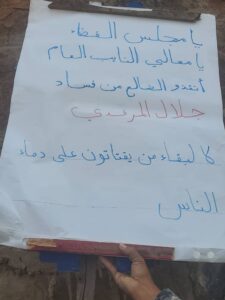 يا مجلس القضاء
يا معالي النايب العام
أنقذو الضالع من فساد
جلال المرعدي
لا لبقاء من يقتاتون على دماء
الناس